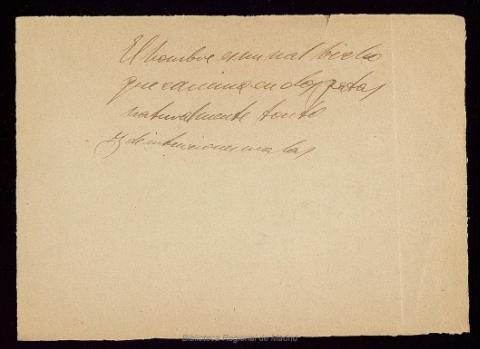 El hombre es un mal bicho
que camina en dos patas
naturalmente tonto
y de intenciones malas
Biblioteca Regional de Madrid